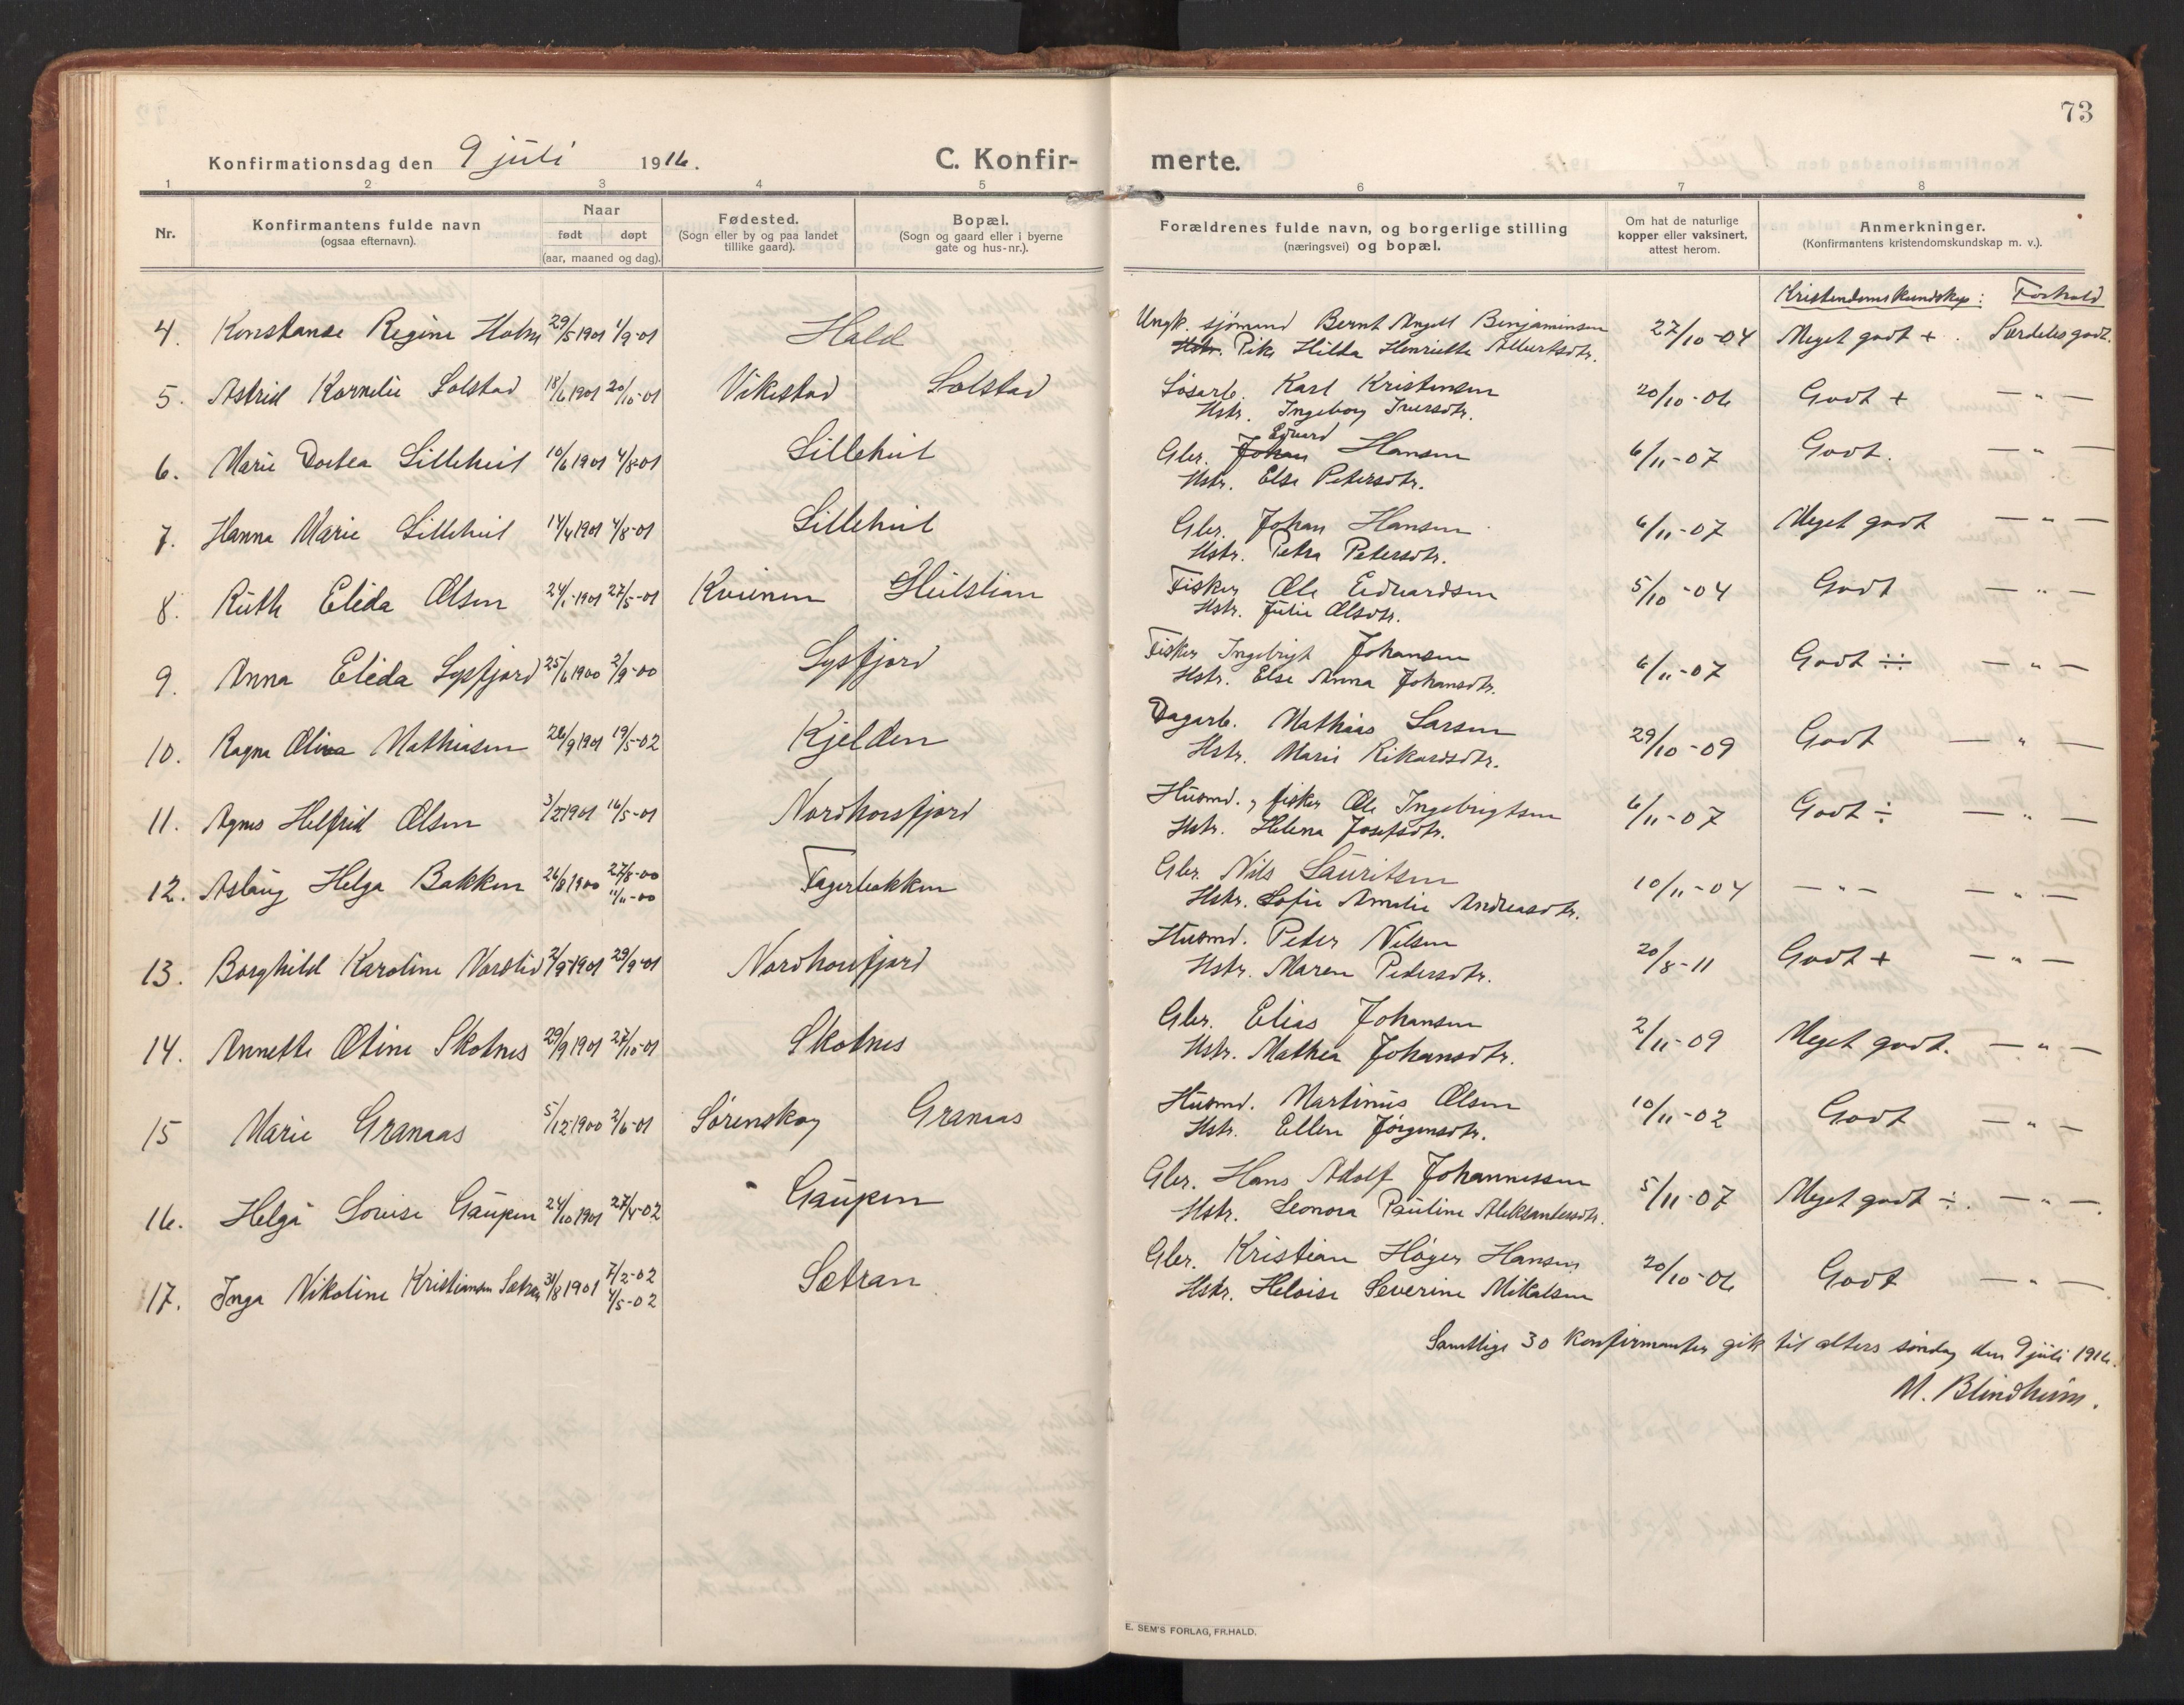 73
Konfirmationsdag den 9 juli 1916.
C. Konfir-
merte.
1 2 3 4 5 6 7 8
Nr.
Konfirmantens fulde navn
(ogsaa efternavn).
Naar
født døpt
(aar, maaned og dag).
Fødested.
(Sogn eller by og paa landet
tillike gaard).
Bopæl.
(Sogn og gaard eller i byerne
gate og hus-nr.).
Forældrenes fulde navn, og borgerlige stilling
(næringsvei) og bopæl.
Om hat de naturlige
kopper eller vaksinert,
attest herom.
Anmerkninger.
(Konfirmantens kristendomskundskap m. v.).
Kristendomskundskap: Forhold
4. Konstanse Regine Holm 29/5 1901 1/9-01 Hald
Ungk. sjømand Bernt Angell Benjaminsen 27/10-04 Meget godt + Særdeles godt.
Hstr. Pike Hilda Henriette Albertsdtr.
5. Astrid Kornelie Solstad 18/6 1901 20/10-01 Vikestad Solstad
Løsarb. Karl Kristensen 20/10-06 Godt + — " —
Hstr. Ingeborg Iversdtr.
6. Marie Dortea Lilleheil 10/6 1901 4/8-01 Lilleheil
Edvard
Gbr. Johan Hansen 6/11-07 Godt. — " —
Hstr. Else Petersdtr.
7. Hanna Marie Lilleheil 14/4 1901 4/8-01 Lilleheil
Gbr. Johan Hansen 6/11-07 Meget godt — " —
Hstr. Petra Petersdtr.
8. Ruth Elida Olsen 24/1-1901 27/5-01 Kveinen Heilslian
Fisker Ole Edvardsen 5/10-04 Godt — " —
Hstr. Julie Olsdtr.
9. Anna Elida Sysfjord 25/6 1900 2/9-00 Sysfjord
Fisker Ingebrigt Johansen 6/11-07 Godt ÷÷ — " —
Hstr. Else Anna Johansdtr.
10. Ragna Oliva Mathiasen 26/9 1901 19/5-02 Kjelden
Dagarb. Mathias Larsen 29/10-09 Godt — " —
Hstr. Marie Rikardsdtr.
11. Agnes Helfrid Olsen 3/2 1901 16/5-01 Nordhorsfjord
Husmd. & fisker Ole Ingebrigtsen 6/11-07 Godt ÷ — " —
Hstr. Helena Josefsdtr.
12. Aslaug Helga Bakken 26/8 1900 27/8-00 Fagerbakken
11/11-00
Gbr. Nils Lauritsen 10/11-04 — " — — " —
Hstr. Sofie Amalie Andreasdtr.
13. Borghild Karoline Nordlid 2/9-1901 29/9-01 Nordhorsfjord
Husmd. Peter Nilsen 20/8-11 Godt + — " —
Hstr. Maren Pedersdtr.
14. Annette Otine Skotnes 29/9 1901 27/10-01 Skotnes
Gbr. Elias Johansen 2/11-09 Meget godt. — " —
Hstr. Mathea Johansdtr.
15 Marie Granaas 5/12-1900 2/6-01 Sørenskog Granaas
Husmd. Martinus Olsen 10/11-02 Godt — " —
Hstr. Ellen Jørgensdtr.
16. Helga Lovise Gaupen 24/10 1901 27/4-02 Gaupen
Gbr. Hans Adolf Johannessen 5/11-07 Meget godt ÷. — " —.
Hstr. Leonora Pauline Aleksandersdtr.
17. Inga Nikoline Kristiansen Sætran 31/8 1901 7/2-02 Sætran
4/5-02
Gbr. Kristian Høyer Hansen 20/10-06 Godt — " —.
Hstr. Heloise Severine Mikalsen
Samtlige 30 konfirmanter gik til alters søndag den 9 juli 1916.
M. Blindheim.
E. SEM'S FORLAG, FR.HALD.